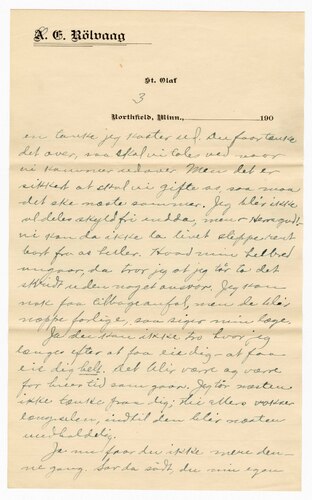 A. E. Rölvaag
St. Olaf
3
Northfield, Minn., 190
en tanke jeg kaster ud. Du faar tænke
det over, saa skal vi tales ved naar
vi kommer udover. Men det er
sikkert at skal vi gifte os, saa maa
det ske næste sommer. Jeg blir ikke
aldeles skyldfri endda, men Herregud -
vi kan da ikke la livet slippe rent
bort for os heller. Hvad min helbred
angaar, da tror jeg at jeg tør ta det
skridt uden noget ansvar. Jeg kan
nok faa tilbageanfal, men de blir
neppe farlige, som siger min læge.
Ja du kan ikke tro hvor jeg
længes efter at faa eie dig - at faa
eie dig helt. Det blir værre og værre
for hver tid som gaar. Jeg tør næsten
ikke tænke paa dig; thi ellers vokser
længselen, indtil den blir næsten
uudholdelig.
Ja nu faar du ikke mere den-
ne gang. Sov da södt, du min egen